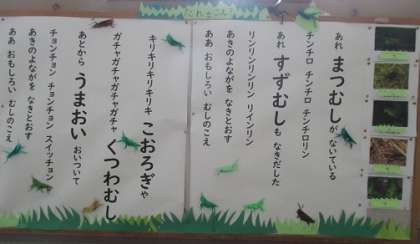 あれ まつむしが ないている
チンチロ チンチロ チンチロリン
あれ すずむしも なきだした
リンリンリンリン リインリン
あきのよながを なきとおす
ああ おもしろい むしのこえ
キリキリキリキリ こおろぎや
ガチャガチャガチャガチャ くつわむし
あとから うまおい おいついて
チョンチョン チョンチョン スイッチョン
あきのよながを なきとおす
ああ おもしろい むしのこえ